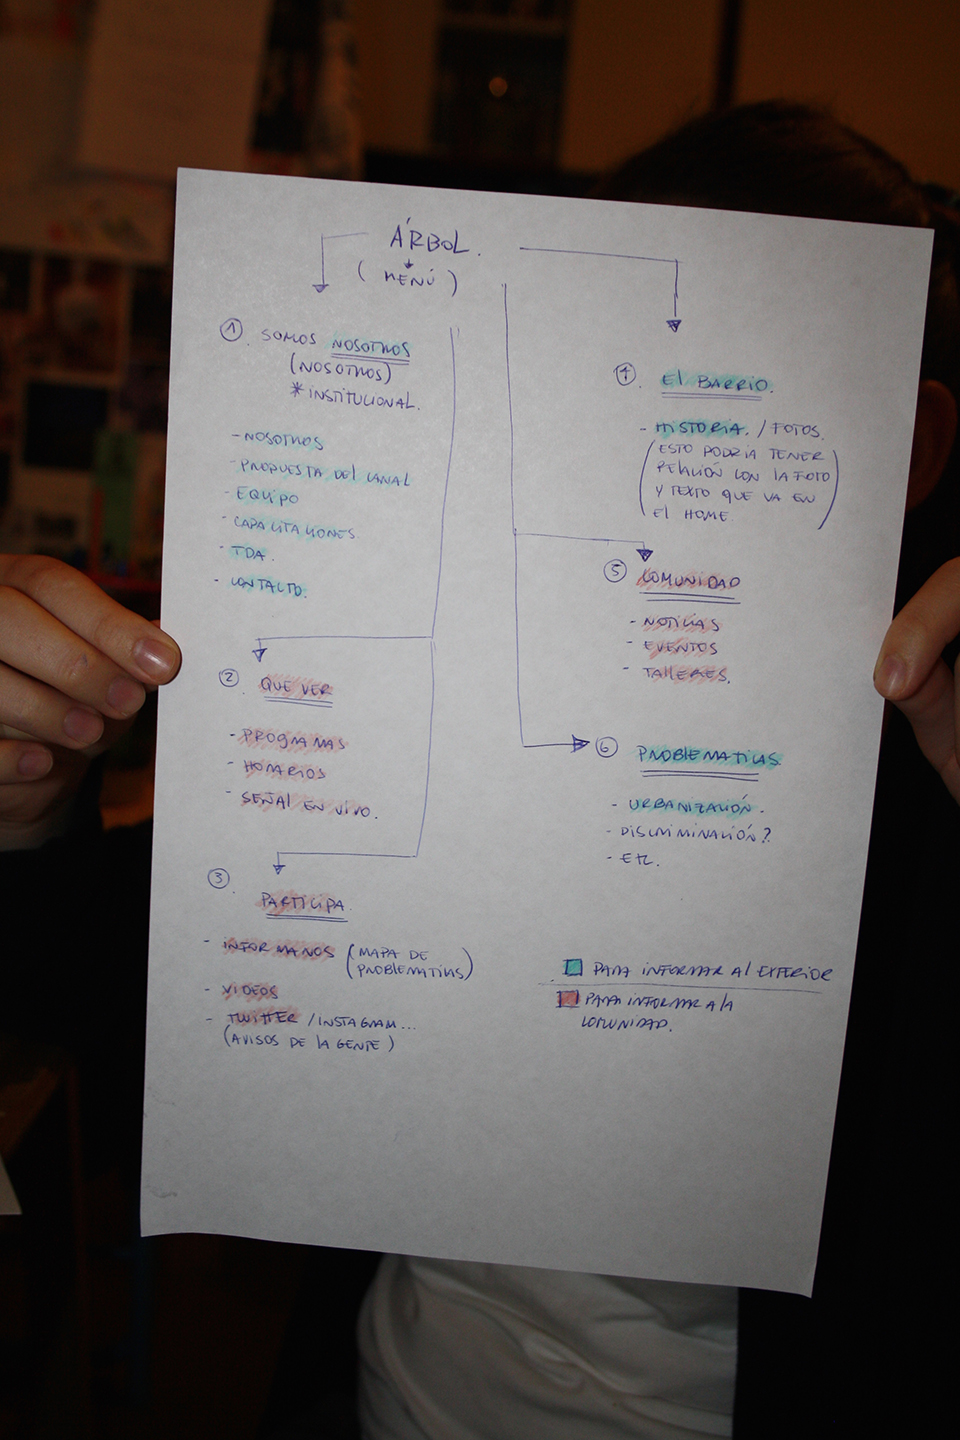 ÁRBOL.
(MENÚ)
1. SOMOS NOSOTROS
(NOSOTROS)
* INSTITUCIONAL.
- NOSOTROS
- PROPUESTA DEL CANAL
- EQUIPO
- CAPACITACIONES
- TDA.
- CONTACTO.
2. QUE VER
- PROGRAMAS
- HORARIOS
- SEÑAL EN VIVO.
3. PARTICIPA
- INFORMANOS (MAPA DE
PROBLEMATICAS)
- VIDEOS
- TWITTER / INSTAGRAM...
(AVISOS DE LA GENTE)
4. El BARRIO.
- HISTORIA. / FOTOS.
(ESTO PODRIA TENER
RELACIÓN CON LA FOTO
Y TEXTO QUE VA EN
El HOME)
5. COMUNIDAD
- NOTICIAS
- EVENTOS
- TALLERES.
6. PROBLEMATICAS
- URBANIZACIÓN.
- DISCRIMINACIÓN?
- ETC.
PARA INFORMAR Al EXTERIOR
PARA INFORMAR A LA
COMUNIDAD.